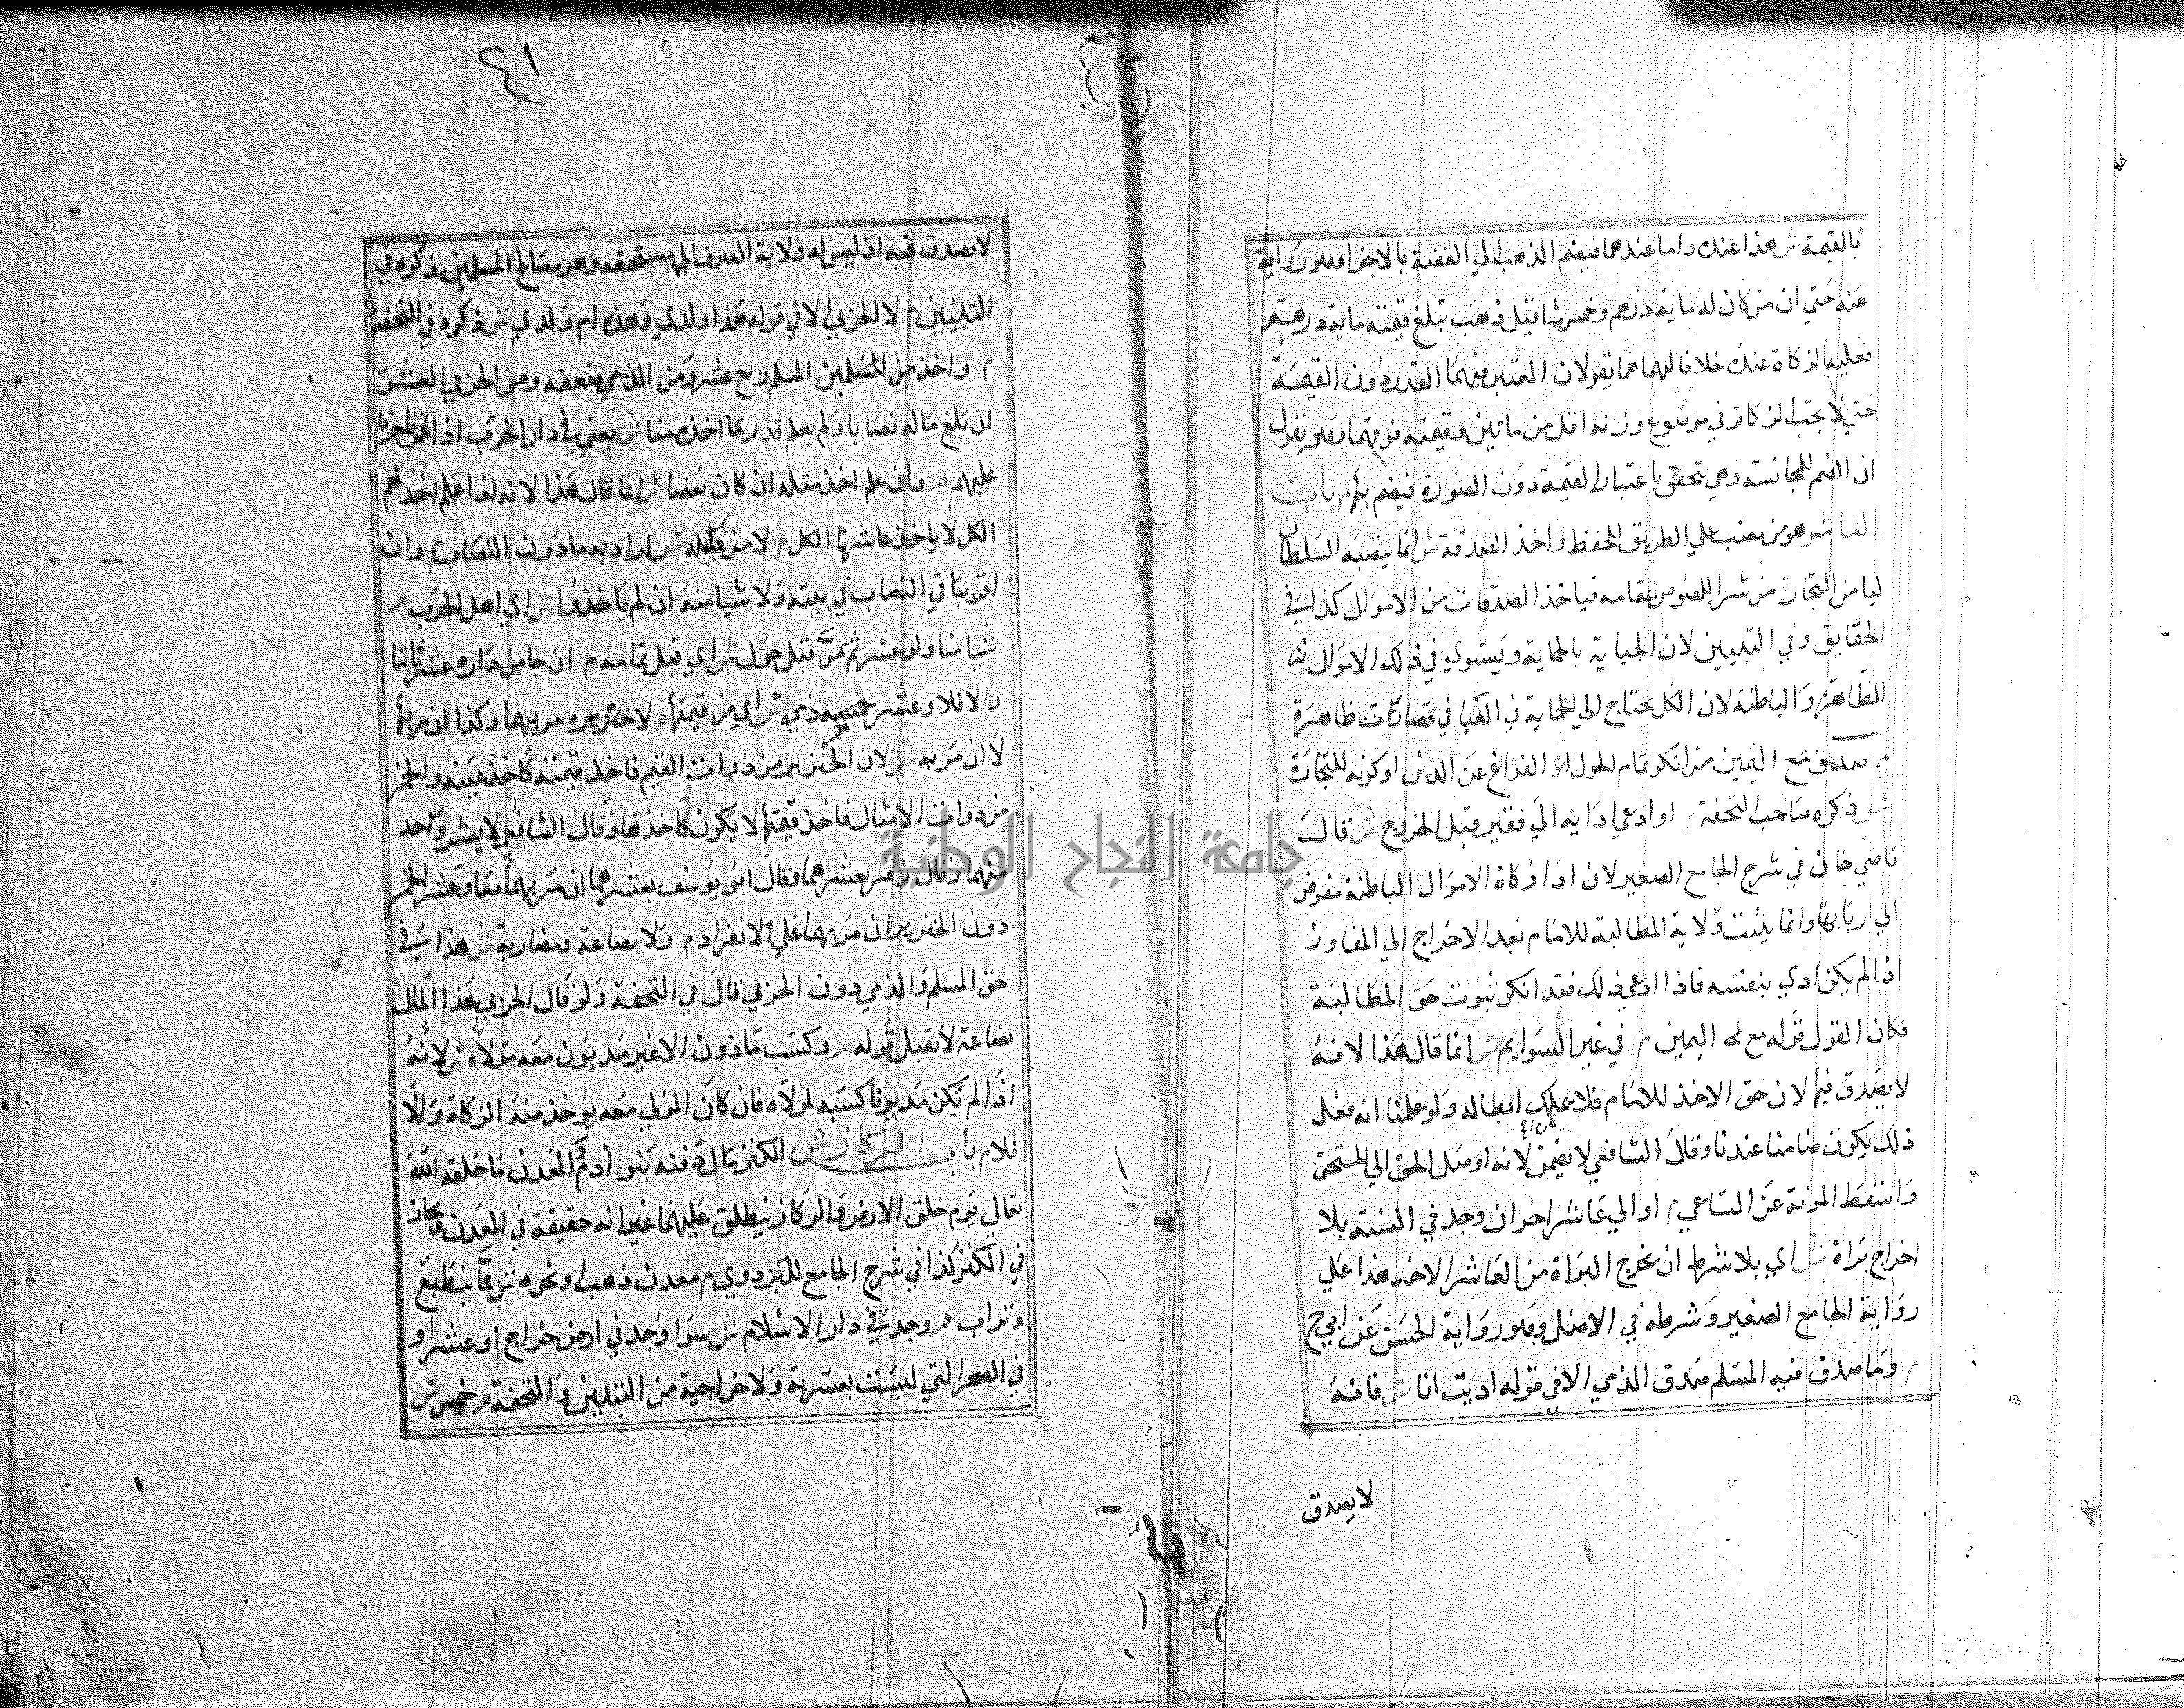 بالقيمة ش هذا عنده واما عندهما فيضم الذهب الي الفضة بالاجزا وهو رواية
عنه حتي ان من كان له ماية درهم وخمس مثاقيل ذهب تبلغ قيمته ماية درهم
فعليه الزكاة عنده خلافا لهما هما يقولان المعتبر فيهما القدر دون القيمة
حتي لا يجب الزكاة في مصوغ وزنه اقل من ماتين وقيمته فوقهما وهو يقول
ان الضم للمجانسة وهي تحقق باعتبار القيمة دون الصورة فيضم بها م باب
العاشر هو من نصب علي الطريق للحفظ واخذ الصدقة ش انما ينصبه السلطان
ليامن التجار من شر اللصوص بمقامه فياخذ الصدقات من الاموال كذا في
الحقايق وفي التبيين لان الجباية بالحماية ويستوي في ذلك الاموال
الظاهرة والباطنة لان الكل يحتاج الي الحماية في الفيافي فصارت ظاهرة
م صدق مع اليمين من انكر تمام الحول او الفراغ عن الدين او كونه للتجارة
ش ذكره صاحب التحفة م او ادعي ادايه الي فقير قبل الخروج ش قال
قاضي خان في شرح الجامع الصغير لان ادا زكاة الاموال الباطنة مفوض
الي اربابها وانما يثبت ولاية المطالبة للامام بعد الاخراج الي المفاوز
اذا لم يكن ادي بنفسه فاذا ادعي ذلك فقد انكر ثبوت حق المطالبة
فكان القول قوله مع اليمين م في غير السوايم ش انما قال هذا لانه
لا يصدق فيها لان حق الاخذ للامام فلا يملك ابطاله ولو علمنا انه فعل
ذلك يكون ضامنا عندنا وقال الشافعي لا يضمن لانه اوصل الحق الي المستحق
واسقط المونة عن الساعي م او الي عاشر اخر ان وجد في السنة بلا
اخراج براة ش اي بلا شرط ان يخرج البراة من العاشر الاخر هذا علي
رواية الجامع الصغير وشرطه في الاصل وهو رواية الحسن عن ابي ح
م وما صدق فيه المسلم صدق الذمي الا في قوله اديت انا ش فانه
لا يصدق
٤١
لا يصدق فيه اذ ليس له ولاية الصرف الي مستحقه وهو مصالح المسلمين ذكره في
التبيين م لا الحربي الا في قوله هذا ولدي وهذه ام ولدي ش ذكره في التحفة
م واخذ من المسلمين المسلم ربع عشر ومن الذمي ضعفه ومن الحربي العشر
ان بلغ ماله نصابا ولم يعلم قدر ما اخذه منا ش يعني في دار الحرب اذا مر تاجرنا
عليهم م وان علم اخذ مثله ان كان بعضا ش انما قال هذا لانه اذا علم اخذهم
الكل لا ياخذ عاشرنا الكل م لا من قليله ش اراد به ما دون النصاب م وان
اقر بباقي النصاب في بيته ولا شيا منه ان لم ياخذوا ش اي اهل الحرب م
شيا منا ولو عشر ثم مر قبل حول ش اي قبل تمامه م ان جا من داره عشر ثانيا
والا فلا وعشر خمر ذمي ش اي من قيمتها م لا خنزيره مر بهما وكذا ان مر بها
لا ان مر به ش لان الخنزير من ذوات القيم فاخذ قيمته كاخذ عينه والخمر
من ذوات الامثال فاخذ قيمتها لا يكون كاخذها وقال الشافعي لا يعشر واحد
منهما وقال زفر يعشرهما وقال ابو يوسف يعشرهما ان مر بهما معا وعشر الخمر
دون الخنزير ان مر بهما علي الانفراد م ولا بضاعة ومضاربة ش هذا في
حق المسلم والذمي دون الحربي قال في التحفة ولو قال الحربي هذا المال
بضاعة لا يقبل قوله م وكسب ماذون الا غير مديون معه مولاه ش لانه
اذا لم يكن مديونا كسبه لمولاه فان كان المولي معه يوخذ منه الزكاة والا
فلا م باب الركاز ش الكنز مال دفنه بنو ادم والمعدن ما خلقه الله
تعالي يوم خلق الارض والركاز ينطلق عليهما غير انه حقيقة في المعدن ومجاز
في الكنز كذا في شرح الجامع للبزدوي م معدن ذهب او نحوه ش مما ينطبع
وتراب م وجد في دار الاسلام ش سوا وجد في ارض خراج او عشر او
في الصحرا التي ليست بعشرية ولا خراجية من التبيين والتحفة م خمس ش
جامعة النجاح الوطنية